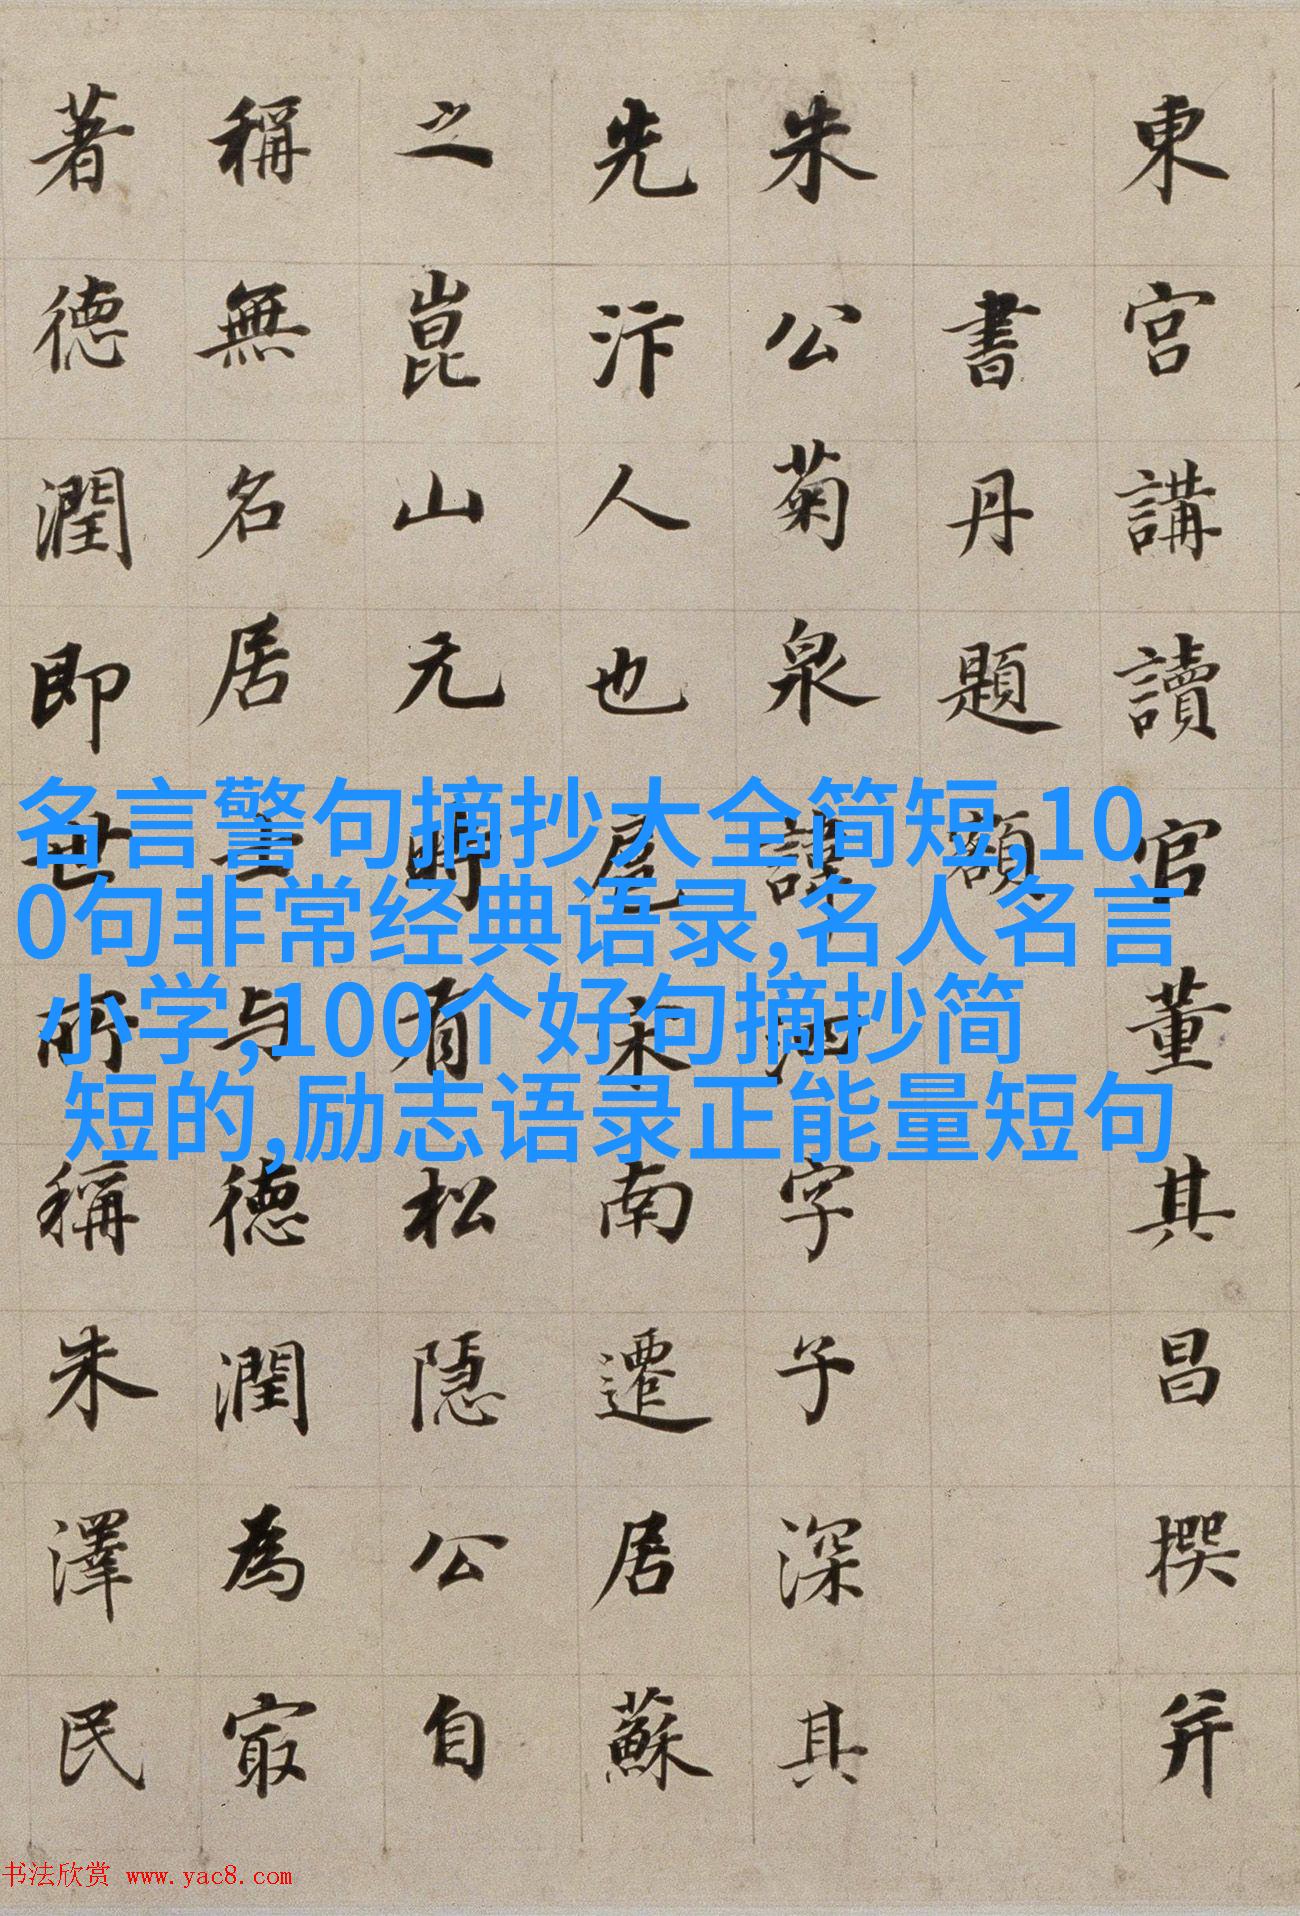 東宮講讀官董其昌撰并
書丹題額
朱公菊泉諱字子深其
先汴人也扈宋南遷居蘇
之崑山元時有松隱公自
稱無名居士与德潤為㝡
著德潤即世所稱朱澤民
名言警句摘抄大全简短,10
0句非常经典语录,名人名言
小学,100个好句摘抄简
短的,励志语录正能量短句
书法欣赏 www.yac8.com